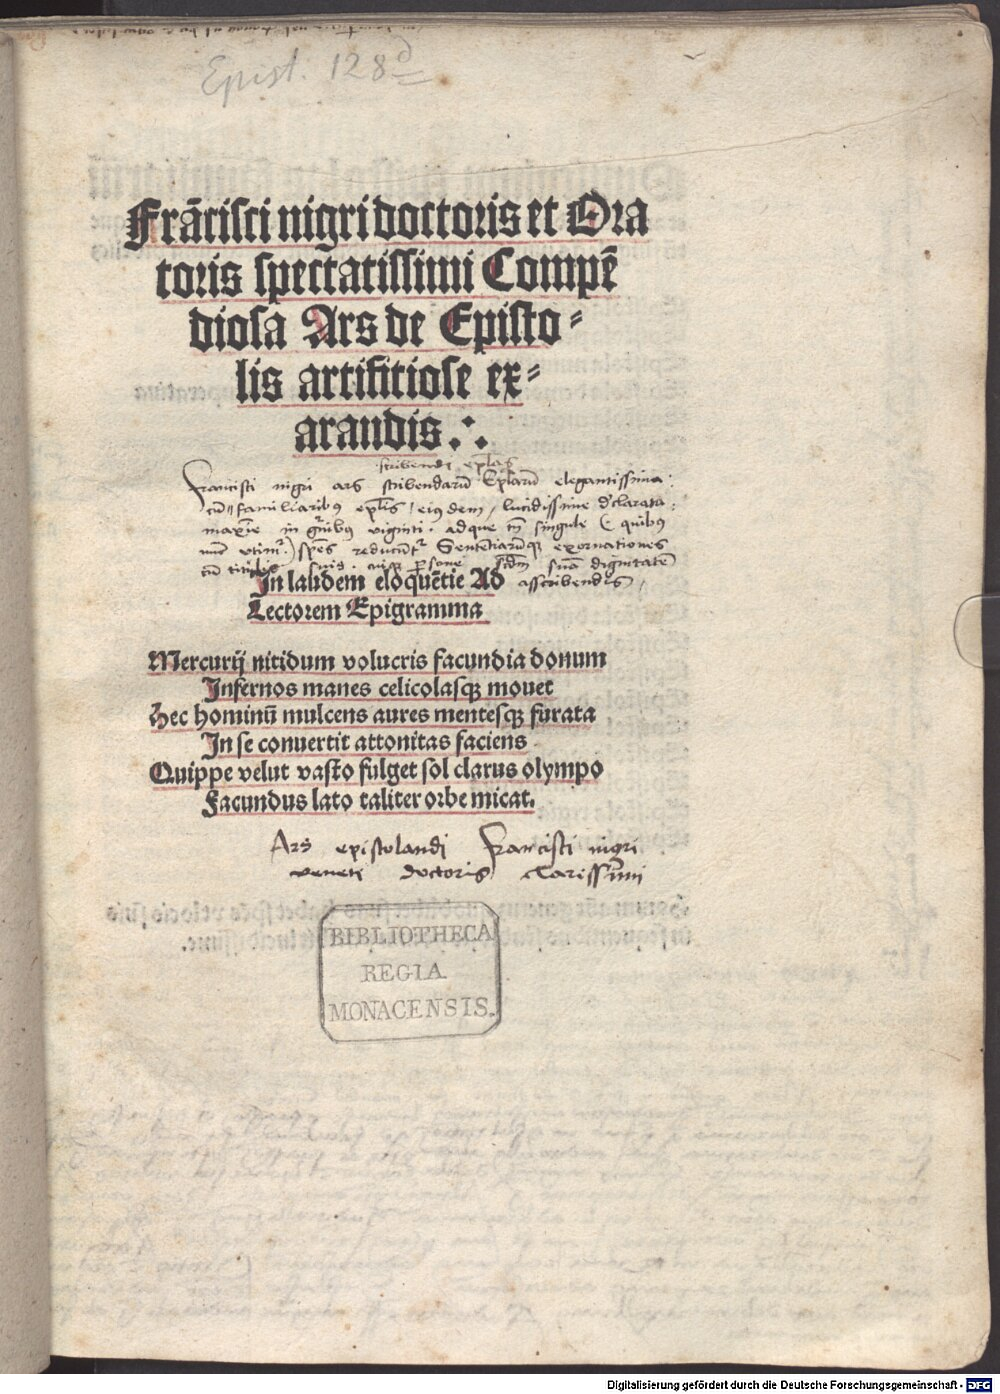 Epist. 128d
Frācisci nigri doctoris et Ora
toris spectatissimi Compē
diosa Ars de Episto⸗
lis artifitiose ex⸗
arandis.:.
scribendi eplas
Francisci nigri ars scribendarū Eplarū elegantissima:
cū familiaribus eplis eiusdem, lucidissime declarata:
maxie in gnibus viginti. adque tn singule (quibus
nunc utimur) spēs reducūtr Sententiarumqꝫ exornationes
cū titulis suis. cuiqꝫ persone scdm suā dignitatē
ascribendis,
In laudem eloquētie Ad
Lectorem Epigramma
Mercurij nitidum volucris facundia donum
Infernos manes celicolasqꝫ mouet
Hec hominū mulcens aures mentesqꝫ furata
In se conuertit attonitas faciens
Quippe velut vasto fulget sol clarus olympo
Facundus lato taliter orbe micat.
Ars epistolandi Francisci nigri
veneti doctoris clarissimi
BIBLIOTHECA
REGIA
MONACENSIS.
Digitalisierung gefördert durch die Deutsche Forschungsgemeinschaft - DFG